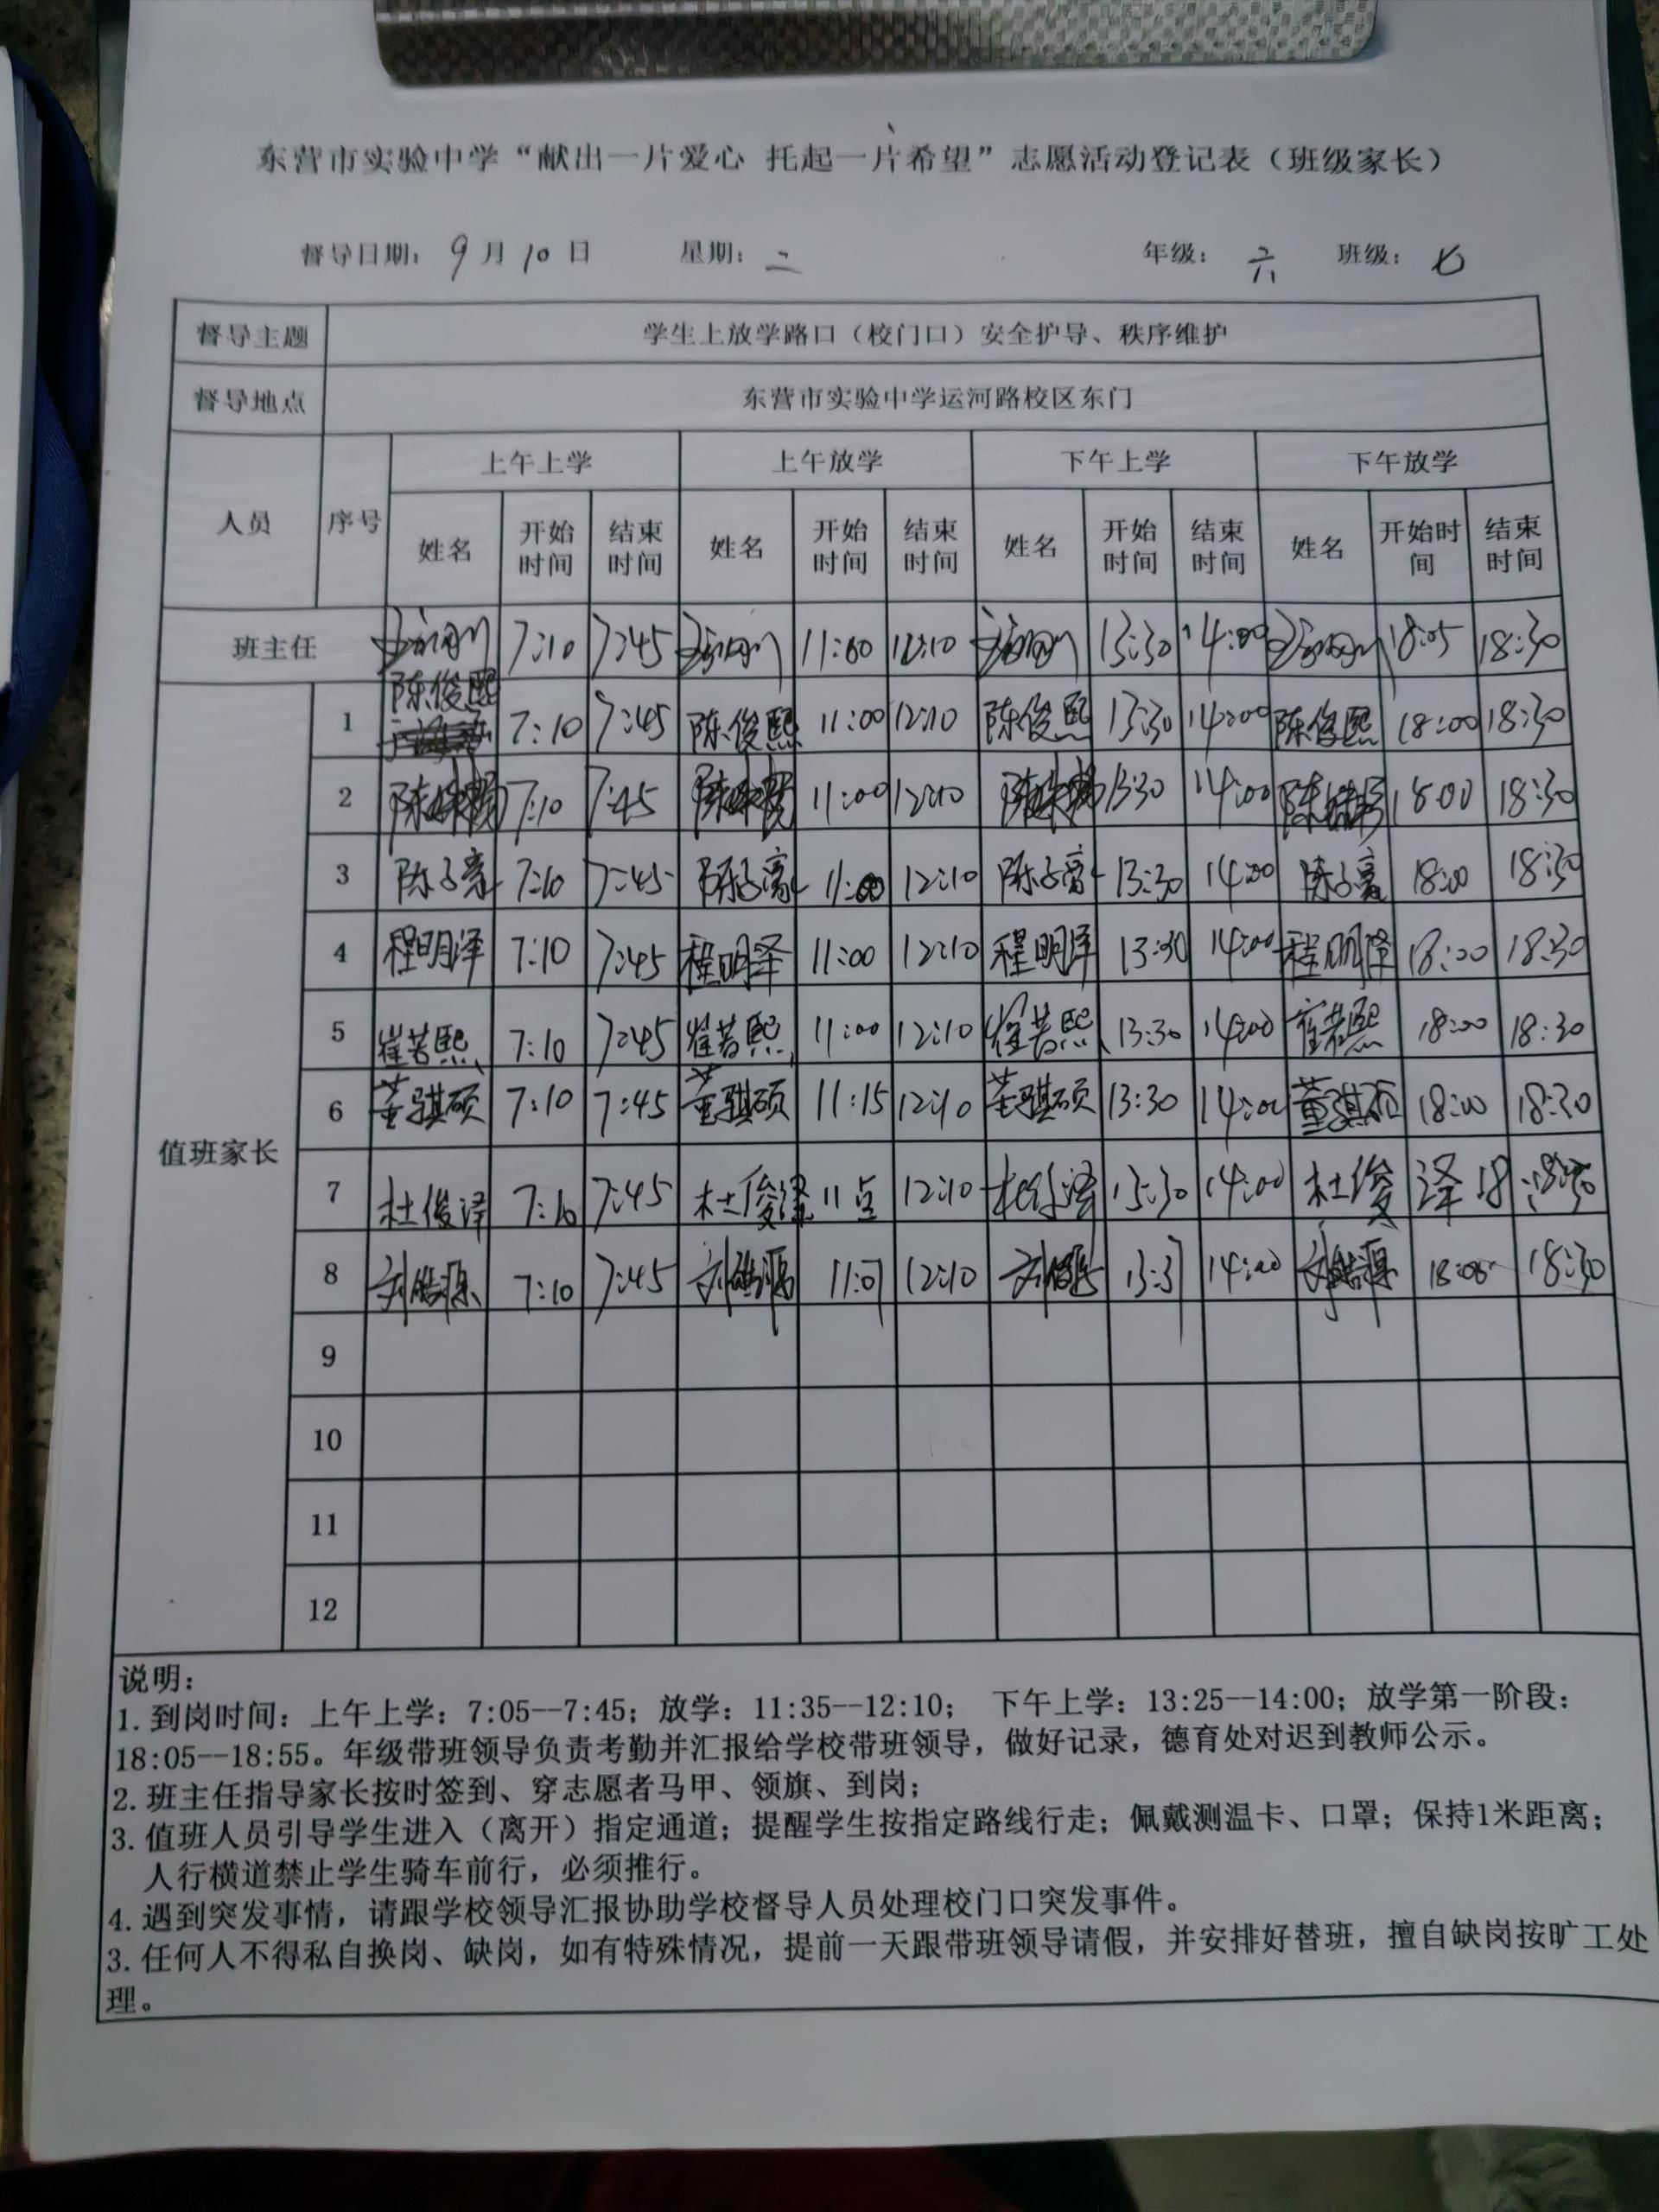 东营市实验中学“献出一片爱心 托起一片希望”志愿活动登记表（班级家长）
督导日期：9月10日 星期：二 年级：六 班级：七
督导主题 学生上放学路口（校门口）安全护导、秩序维护
督导地点 东营市实验中学运河路校区东门
人员 序号 上午上学 上午放学 下午上学 下午放学
姓名 开始时间 结束时间 姓名 开始时间 结束时间 姓名 开始时间 结束时间 姓名 开始时间 结束时间
班主任 7:10 7:45 11:00 12:10 13:30 14:00 18:05 18:30
值班家长
1 陈俊熙 7:10 7:45 陈俊熙 11:00 12:10 陈俊熙 13:30 14:00 陈俊熙 18:00 18:30
2 7:10 7:45 11:00 12:10 13:30 14:00 18:00 18:30
3 陈子亮 7:10 7:45 陈子亮 11:00 12:10 陈子亮 13:30 14:00 陈子亮 18:00 18:30
4 程明泽 7:10 7:45 程明泽 11:00 12:10 程明泽 13:30 14:00 程明泽 18:00 18:30
5 崔若熙 7:10 7:45 崔若熙 11:00 12:10 崔若熙 13:30 14:00 崔若熙 18:00 18:30
6 董骐硕 7:10 7:45 董骐硕 11:15 12:10 董骐硕 13:30 14:00 董骐硕 18:00 18:30
7 杜俊泽 7:10 7:45 杜俊泽 11点 12:10 杜俊泽 13:30 14:00 杜俊泽 18: 18:30
8 刘皓源 7:10 7:45 刘皓源 11:07 12:10 刘皓源 14:00 刘皓源 18:05 18:30
9
10
11
12
说明：
1.到岗时间：上午上学：7:05--7:45；放学：11:35--12:10； 下午上学：13:25--14:00；放学第一阶段：
18:05--18:55。年级带班领导负责考勤并汇报给学校带班领导，做好记录，德育处对迟到教师公示。
2.班主任指导家长按时签到、穿志愿者马甲、领旗、到岗；
3.值班人员引导学生进入（离开）指定通道；提醒学生按指定路线行走；佩戴测温卡、口罩；保持1米距离；
人行横道禁止学生骑车前行，必须推行。
4.遇到突发事情，请跟学校领导汇报协助学校督导人员处理校门口突发事件。
3.任何人不得私自换岗、缺岗，如有特殊情况，提前一天跟带班领导请假，并安排好替班，擅自缺岗按旷工处
理。